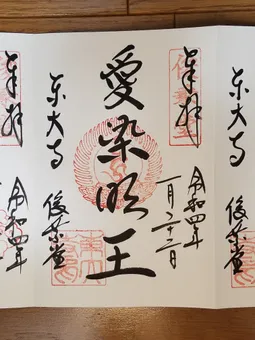 奉拝
俊乗堂
令和四年
一月二十二日
愛染明王
奉拝
東大寺
俊乗堂
令和四年
東大寺
俊乗堂